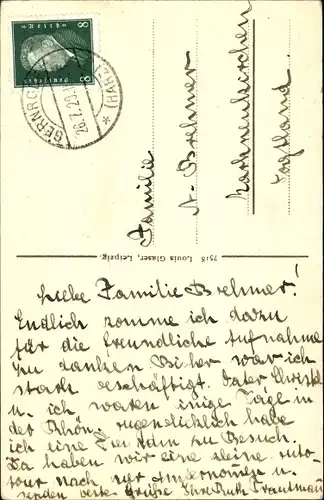 Deutsches
Reich
8 8
GERNRODE
(HARZ)
28.7.29
Familie
A. Brehmer
Markneukirchen
Vogtland.
7518 Louis Glaser, Leipzig.
Liebe Familie Brehmer!
Endlich komme ich dazu
für die freundliche Aufnahme
zu danken. Bisher war ich
stark beschäftigt. Vater Christel
u. ich waren einige Tage in
der Rhön. Augenblicklich habe
ich eine zu Besuch.
Da haben wir eine kleine Auto-
tour nach hier unternommen u.
senden beste Grüße Ihre Ruth Trautmann